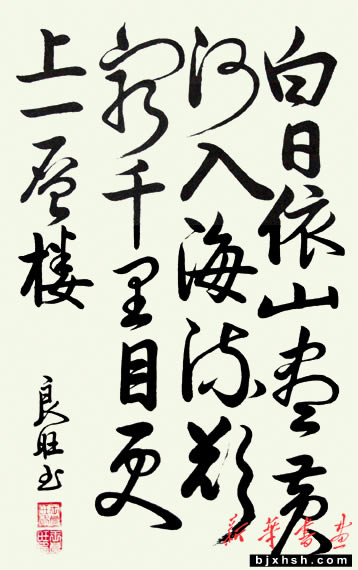 白日依山尽黄
河入海流欲
穷千里目更
上一层楼
良旺书
新华书画
bjxhsh.com